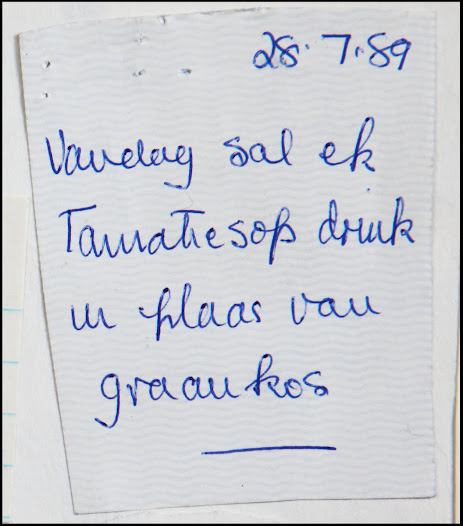 28.7.89
Vandag sal ek
Tamatiesop drink
in plaas van
graankos